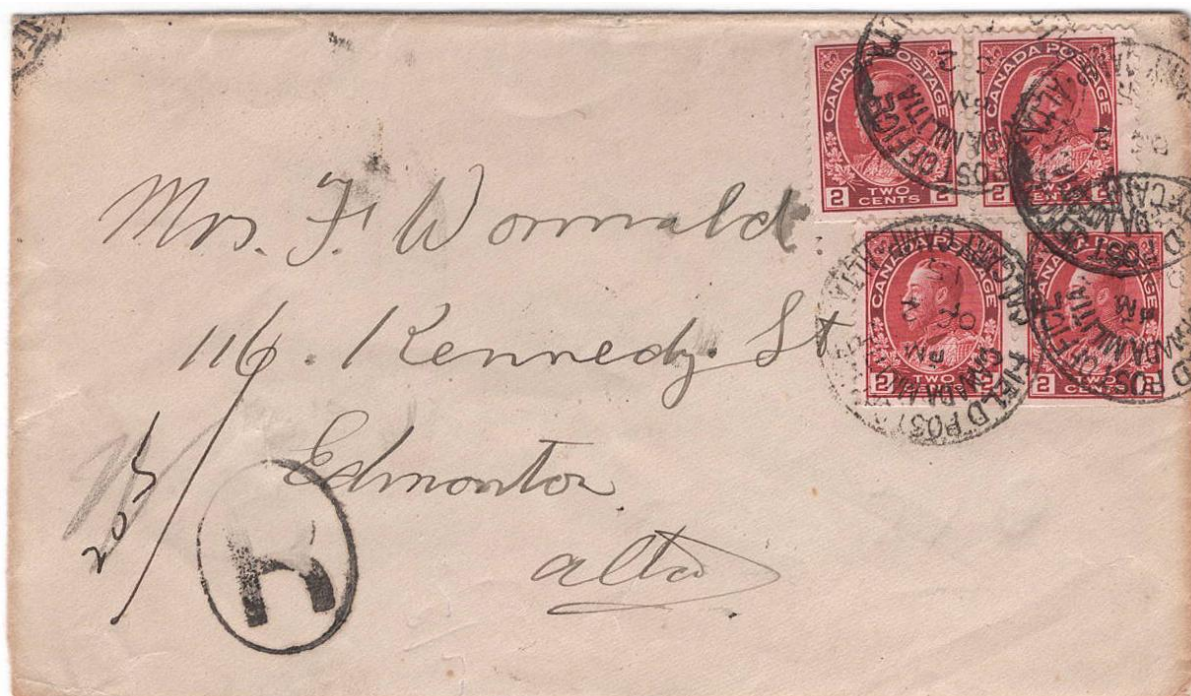 CANADA POSTAGE
2 TWO CENTS 2
CANADA POSTAGE
2 TWO CENTS 2
CANADA POSTAGE
2 TWO CENTS 2
CANADA POSTAGE
2 TWO CENTS 2
FIELD POST OFFICE
CANADA MILITIA
PM
OC 2
15
CALGARY CAMP, ALTA.
Mrs. F. Wormald.
116. Kennedy. St
Edmonton
Alta.
205
R